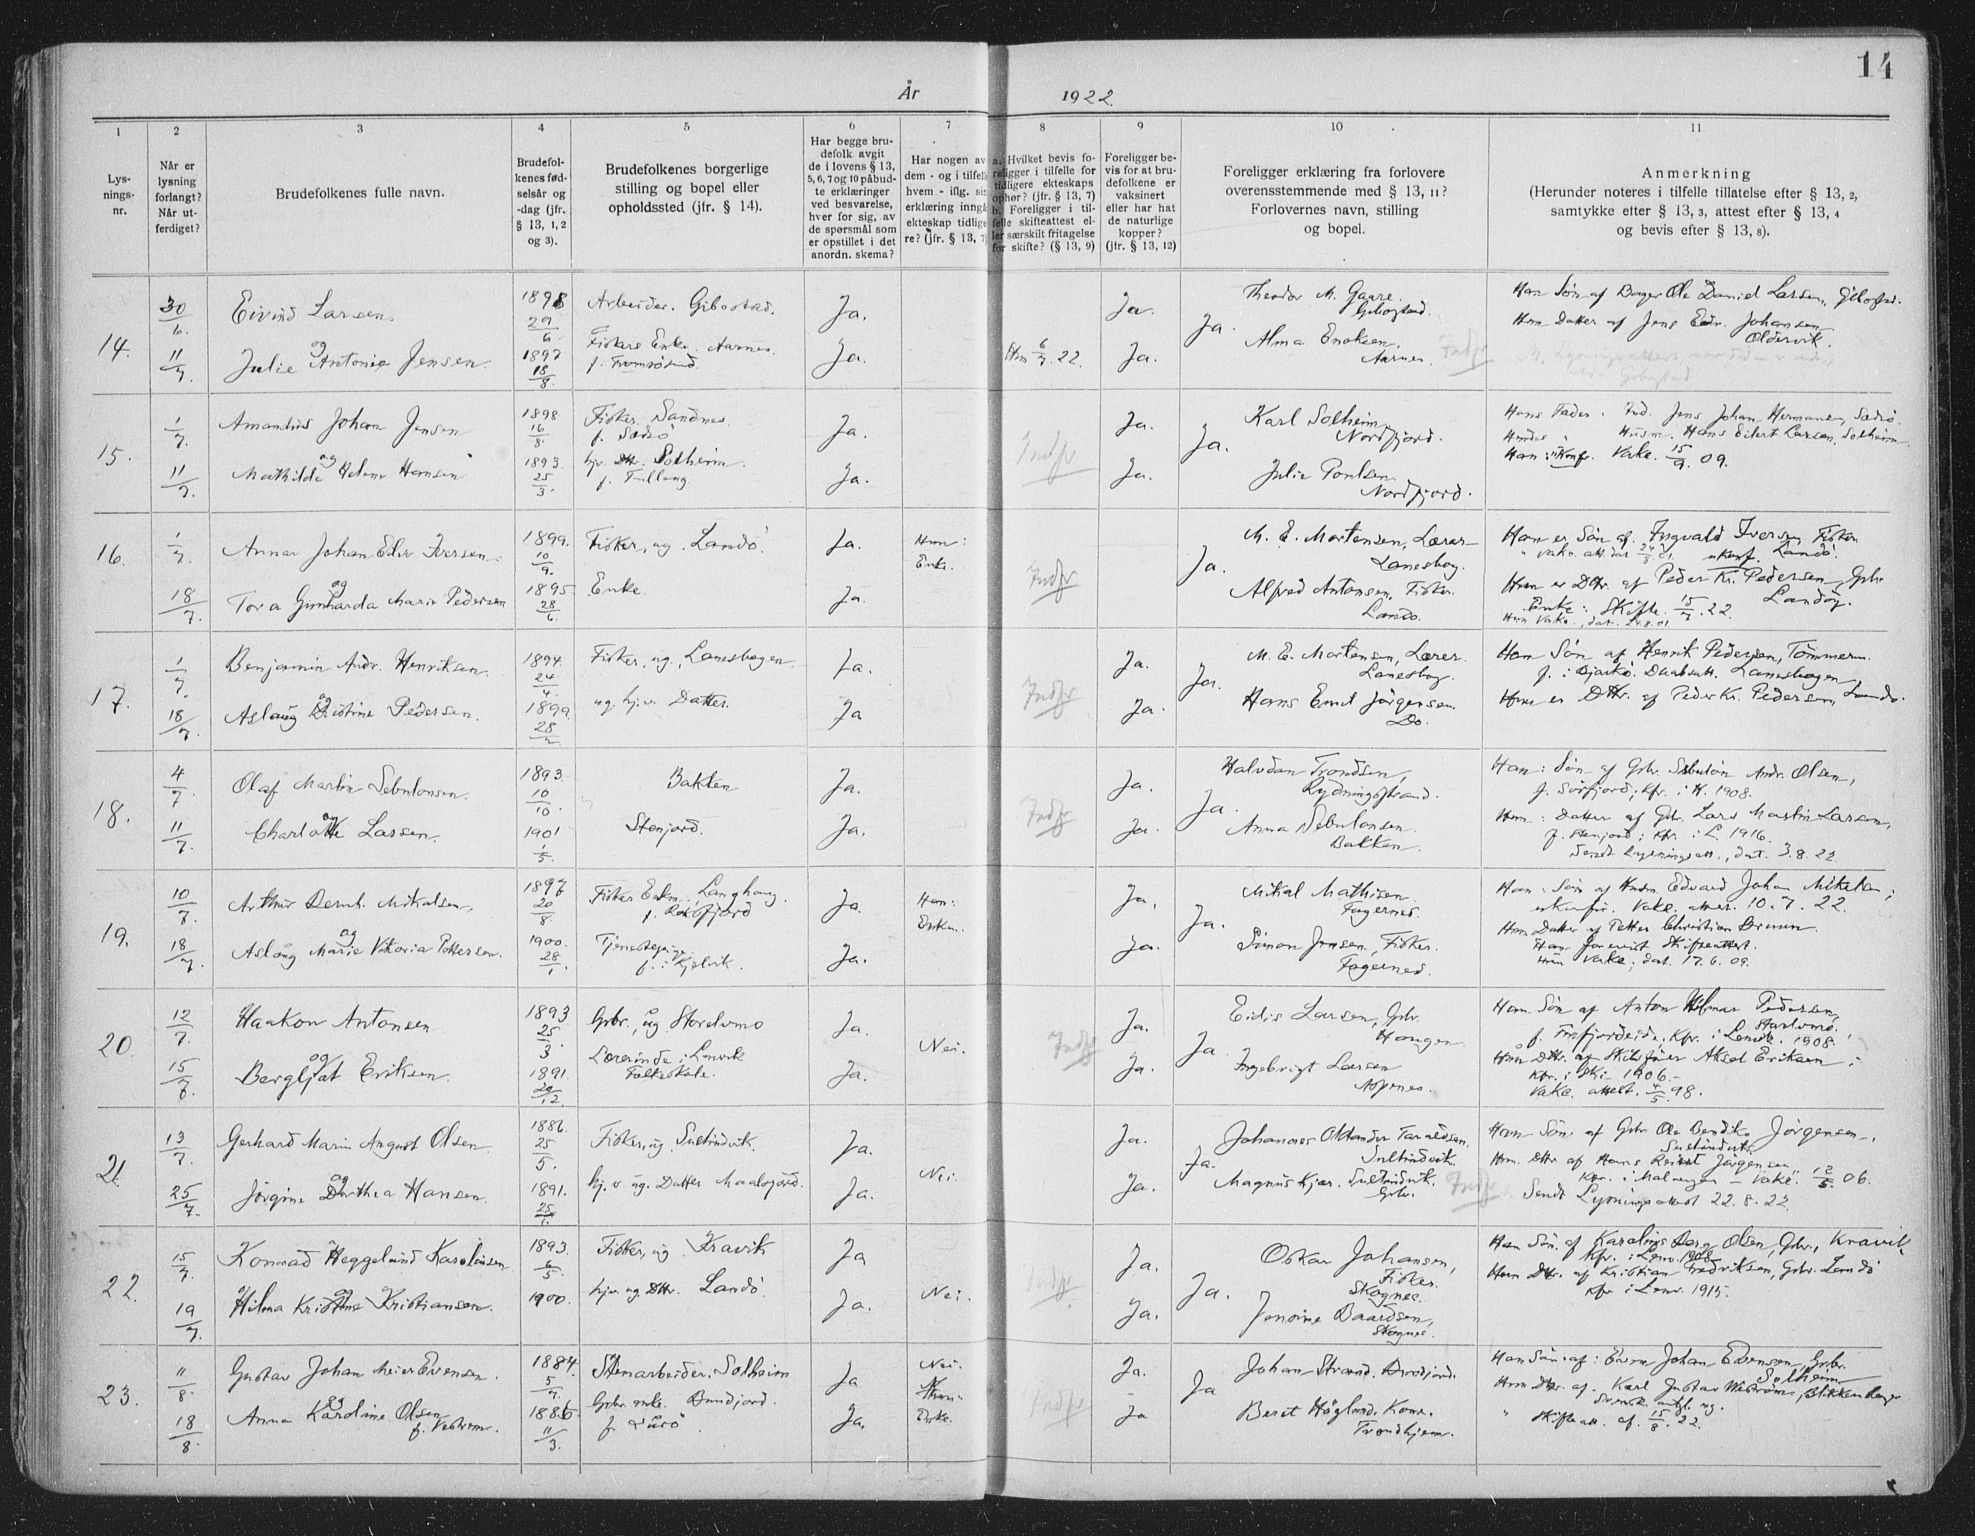 14
År 1922
1
2
3
4
5
6
7
8
9
10
11
Lys-
nings-
nr.
Når er
lysning
forlangt?
Når ut-
ferdiget?
Brudefolkenes fulle navn.
Brudefol-
kenes fød-
selsår og
-dag (jfr.
§ 13, 1, 2
og 3).
Brudefolkenes borgerlige
stilling og bopel eller
opholdssted (jfr. § 14).
Har begge bru-
defolk avgit
de i lovens § 13,
5, 6, 7 og 10 påbud-
te erklæringer
ved besvarelse,
hver for sig, av
de spørsmål som
er opstillet i det
anordn. skema?
Har nogen av
dem - og i tilfelle
hvem - iflg. sin
erklæring inngå
ekteskap tidlige
re? (jfr. § 13, 7)
a. Hvilket bevis fo-
religger i tilfelle for
tidligere ekteskaps
ophør? (jfr. § 13, 7)
b. Foreligger i til-
felle skifteattest el-
ler særskilt fritagelse
for skifte? (§ 13, 9)
Foreligger be-
vis for at bru-
defolkene er
vaksinert
eller har hat
de naturlige
kopper?
(jfr. § 13, 12)
Foreligger erklæring fra forlovere
overensstemmende med § 13, 11?
Forlovernes navn, stilling
og bopel.
Anmerkning
(Herunder noteres i tilfelle tillatelse efter § 13, 2,
samtykke efter § 13, 3, attest efter § 13, 4
og bevis efter § 13, 8).
14.
30/6.
11/7.
Eivind Larsen.
og
Julie Antonie Jensen.
1898
29/6
1897
18/8.
Arbeider. Gibostad.
Fiskers Enke. Aarnes.
f. Tromsösund.
Ja.
Ja.
Hun 6/7. 22.
Ja.
Ja.
Ja.
Theodor M. Gaare.
Gibostad.
Alma Enoksen.
Aarnes.
Indfr
Han Søn af Bager Ole Daniel Larsen, Gibostad.
Hun Datter af Jens Edv. Johansen
Oldervik.
15.
1/7.
11/7.
Amandus Johan Jensen
og
Mathilde Helene Hansen
1898
16/8.
1893.
25/3.
Fisker. Sandnes.
f. Sædsö
hjv. Dtr. Solheim.
Ja.
Ja.
Indfr
Ja.
Ja.
Ja.
Karl Solheim,
Nordfjord.
Julie Poulsen
Nordfjord.
Hans Fader. Ind. Jens Johan Hermansen, Sædsö.
Hendes " Husm. Hans Eilert Larsen, Solheim.
Vake. 15/9. 09.
16.
1/7.
18/7.
Annar Johan Edv. Iversen.
og
Tora Gunharda Marie Pedersen
1899.
10/9.
1895
28/6.
Fisker, ug. Landö.
Enke.
Ja.
Ja.
Hun:
Enke.
Indfr
Ja.
M. E. Mortensen, Lærer
Lanesbog.
Alfred Antonsen. Fisker.
Landö.
Han er Søn af. Ingvald Iversen, Fisker
Landö.
Hun er Dtr. af Peder Kr. Pedersen, Gbr.
Landöy.
Enke: Skifte. 15/7. 22.
Hun Vake., dat. 24.8.01
17.
1/7.
18/7.
Benjamin Andr. Henriksen.
og
Aslaug Kristine Pedersen.
1894.
24/4.
1899.
Fisker, ug., Lanesbogen.
ug. hj.v. Datter.
Ja.
Ja
Indfr
Ja.
Ja.
Ja.
M. E. Mortensen, Lærer.
Lanesbog.
Hans Emil Jörgensen.
Do.
Han Søn af Henrik Pedersen, Tömmerm.
f. i Bjarkö. Daabsatt. Lanesbogen
Hun er Dtr. af Peder Kr. Pedersen, Landö.
18.
4/7
11/7.
Olaf Martin Sebulonsen.
og
Charlotte Larsen.
1893.
10/10.
1901
1/5.
Bakken
Stenjord.
Ja.
Ja.
Indfr
Ja.
Ja.
Ja.
Halvdan Trondsen,
Rydningstrand.
Anna Sebulonsen.
Bakken.
Han: Søn af Gbr. Sebulon Andr. Olsen,
f. Sörfjord; Kfr. i H. 1908.
Hun: Datter af Gbr. Lars Martin Larsen,
f. Stenjord; Kfr. i L. 1916.
Sendt Lysningsatt., dat. 3.8.22
19.
10/7.
18/7.
Arthur Bernh. Mikalsen.
og
Aslaug Marie Viktoria Pettersen.
1897
20/8.
1900.
28/1.
Fisker Enkm., Langhaug.
Tjenestepige
f. i Kjelvik.
Ja.
Ja.
Han:
Enkm.
Ja.
Ja.
Ja.
Mikal Mathisen
Fagernes.
Simon Jensen, Fisker.
Fagernes.
Han: Søn af Husm. Edvard Johan Mikalsen;
Vake. attest. 10. 7. 22.
Hun Datter af Petter Christian
Han forevist Skifteattest.
Hun Vake; dat. 17.6.09.
20.
12/7.
15/7
Haakon Antonsen
og
Bergljot Eriksen.
1893
25/3
1891.
20/12.
Gbr., ug Storelvmo
Lærerinde i Lenvik
Folkeskole.
Ja.
Ja.
Nei.
Indfr
Ja.
Ja.
Ja.
Eidis Larsen, Gbr.
Haugen
Ingebrigt Larsen
Aspenes.
Han Søn af Anton Hilmar Pedersen,
Storelvmo.
Kfr. i Lenvik. 1908.
Hun Dtr. af Skibsfører Aksel Eriksen;
Kfr. i Ski 1906.
Vake. attest. 4/5. 98.
21.
13/7.
25/7.
Gerhard Marin August Olsen.
og
Jörgine Dorthea Hansen.
1886.
25/5.
1891.
Fisker, ug. Sultindvik.
hj. v. ug. Datter Maalsfjord.
Ja.
Ja.
Nei.
Ja.
Ja.
Ja.
Johannes Oldander Taraldsen.
Sultindvik.
Magnus Kjær. Sultindvik.
Gbr.
Indfr
Han Søn af Gbr Ole Bendik. Jörgensen.
Sultindvik.
Hun. Dtr af Hans Reinert Jörgensen,
Kfr. i Malangen - Vake. 12/5. 06.
Sendt Lysningsattest 22. 8. 22.
22.
15/7.
19/7
Konrad Heggelund Karoliussen
og
Hilma Kristine Kristiansen.
1893.
6/5.
1900.
Fisker, ug Kravik
hjv. ug. Dtr. Landö
Ja
Ja.
Nei.
Indfr
Ja.
Ja.
Ja.
Oskar Johansen,
Fisker.
Skognes.
Jensine Baardsen,
Skognes.
Han Søn. af Karolius Olsen, Gbr., Kravik,
Kfr. i Lenv. 1908
Hun Dtr. af Kristian Fredriksen, Gbr. Landö
Kfr i Lenv. 1915.
23.
11/8.
18/8.
Gustav Johan Meier Evensen.
og
Anna Karoline Olsen
f. Vestrøm.
1884.
5/7.
1886.
11/3.
Stenarbeider. Solheim
Gbr. enke. Brudfjord.
Ja
Ja.
Nei.
Hun:
Enke.
Indfr
Ja.
Ja
Ja
Johan Strand
Berit Höglund, Kone.
Trondhjem.
Han Søn af: Even Johan Evensen, Gbr.
Solheim
Hun Dtr. af. Karl Gustav
Skifteatt. af. 15/8. 22.